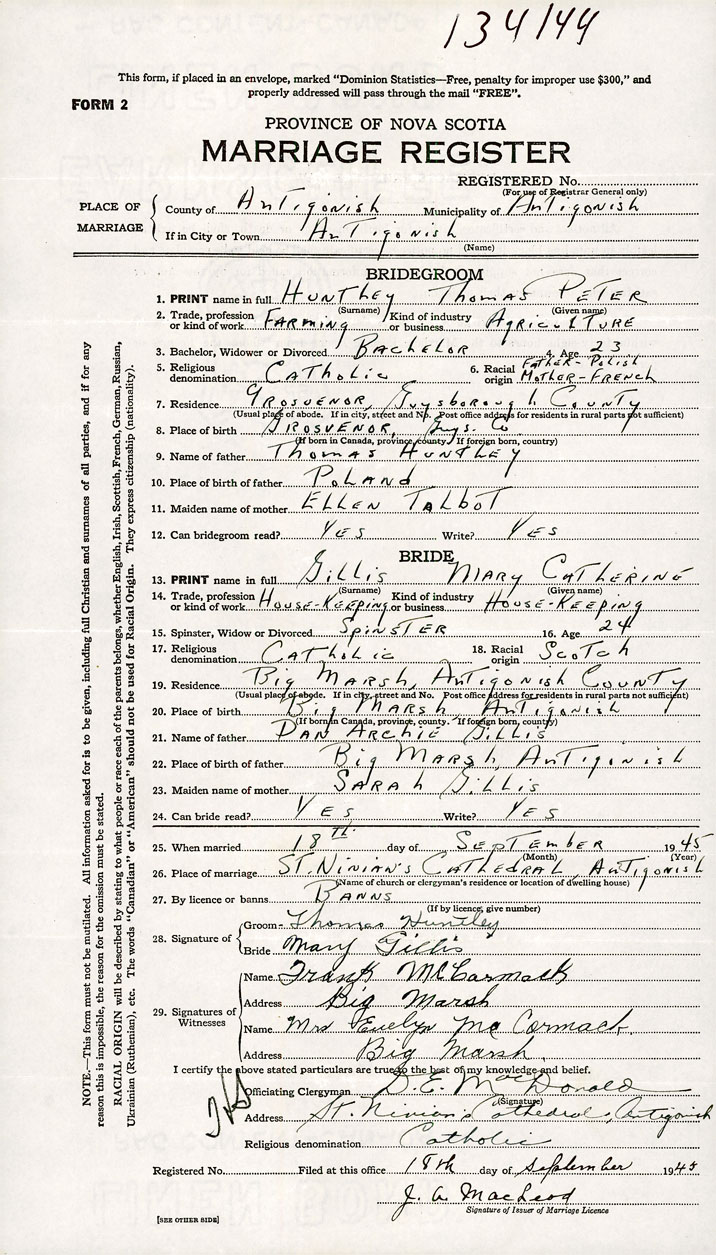 134144
This form, if placed in an envelope, marked "Dominion Statistics—Free, penalty for improper use $300," and
properly addressed will pass through the mail "FREE".
FORM 2
PROVINCE OF NOVA SCOTIA
MARRIAGE REGISTER
REGISTERED No.
(For use of Registrar General only)
PLACE OF MARRIAGE
County of Antigonish Municipality of Antigonish
If in City or Town Antigonish
(Name)
BRIDEGROOM
1. PRINT name in full Huntley Thomas Peter
(Surname) (Given name)
2. Trade, profession or kind of work Farming Kind of industry or business Agriculture
3. Bachelor, Widower or Divorced Bachelor 4. Age 23
5. Religious denomination Catholic 6. Racial origin Father-Polish Mother-French
7. Residence Grosvenor, Guysborough County
(Usual place of abode. If in city, street and No. Post office address for residents in rural parts not sufficient)
8. Place of birth Grosvenor, Guys. Co
(If born in Canada, province, county. If foreign born, country)
9. Name of father Thomas Huntley
10. Place of birth of father Poland
11. Maiden name of mother Ellen Talbot
12. Can bridegroom read? Yes Write? Yes
BRIDE
13. PRINT name in full Gillis Mary Catherine
(Surname) (Given name)
14. Trade, profession or kind of work House-Keeping Kind of industry or business House-Keeping
15. Spinster, Widow or Divorced Spinster 16. Age 24
17. Religious denomination Catholic 18. Racial origin Scotch
19. Residence Big Marsh, Antigonish County
(Usual place of abode. If in city, street and No. Post office address for residents in rural parts not sufficient)
20. Place of birth Big Marsh Antigonish
(If born in Canada, province, county. If foreign born, country)
21. Name of father Dan Archie Gillis
22. Place of birth of father Big Marsh, Antigonish
23. Maiden name of mother Sarah Gillis
24. Can bride read? Yes Write? Yes
25. When married 18th day of September 1945
(Month) (Year)
26. Place of marriage St. Ninian's Cathedral, Antigonish
(Name of church or clergyman's residence or location of dwelling house)
27. By licence or banns Banns
(If by licence, give number)
28. Signature of
Groom Thomas Huntley
Bride Mary Gillis
29. Signatures of Witnesses
Name Frank McCormack
Address Big Marsh
Name Mrs Evelyn McCormack
Address Big Marsh
I certify the above stated particulars are true to the best of my knowledge and belief.
Officiating Clergyman D. E. MacDonald
(Signature)
Address St. Ninian's Cathedral, Antigonish
Religious denomination Catholic
Registered No. Filed at this office 18th day of September 1945
J. A. MacLeod
Signature of Issuer of Marriage Licence
[SEE OTHER SIDE]
NOTE.—This form must not be mutilated. All information asked for is to be given, including full Christian and surnames of all parties, and if for any
reason this is impossible, the reason for the omission must be stated.
RACIAL ORIGIN will be described by stating to what people or race each of the parents belongs, whether English, Irish, Scottish, French, German, Russian,
Ukrainian (Ruthenian), etc. The words "Canadian" or "American" should not be used for Racial Origin. They express citizenship (nationality).